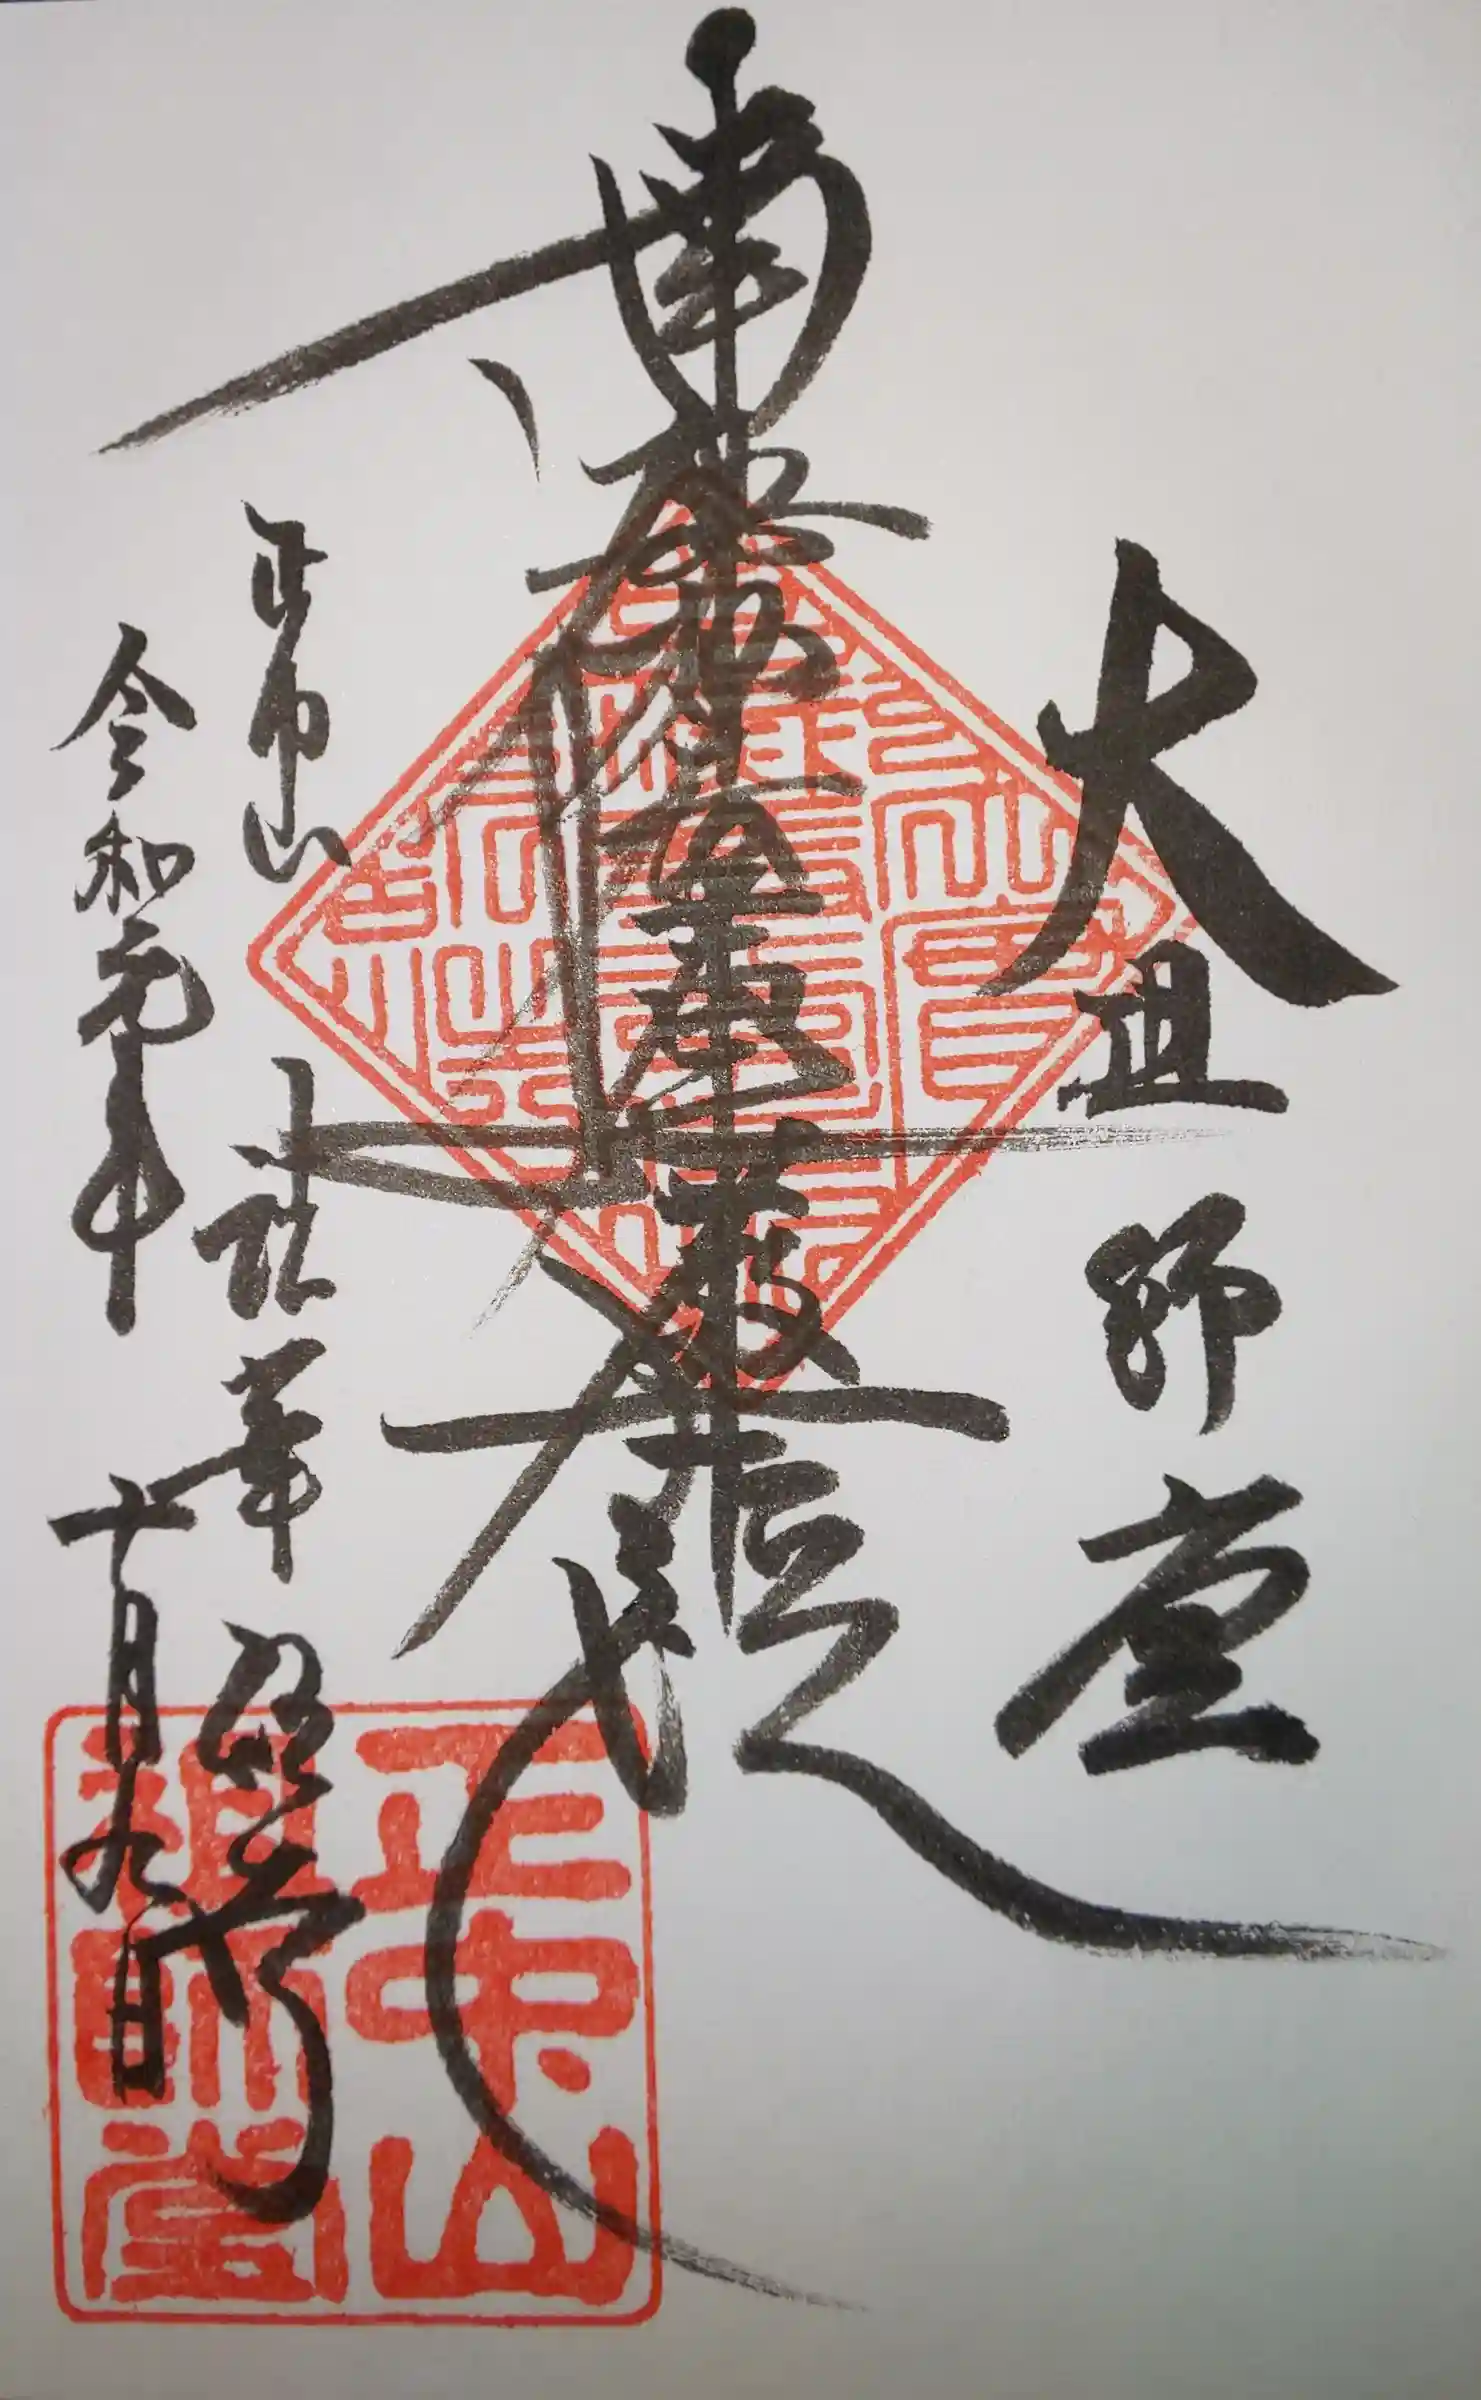 大祖師堂
南無妙法蓮華経
正中山 法華経寺
令和元年十月九日
正中山
祖師堂